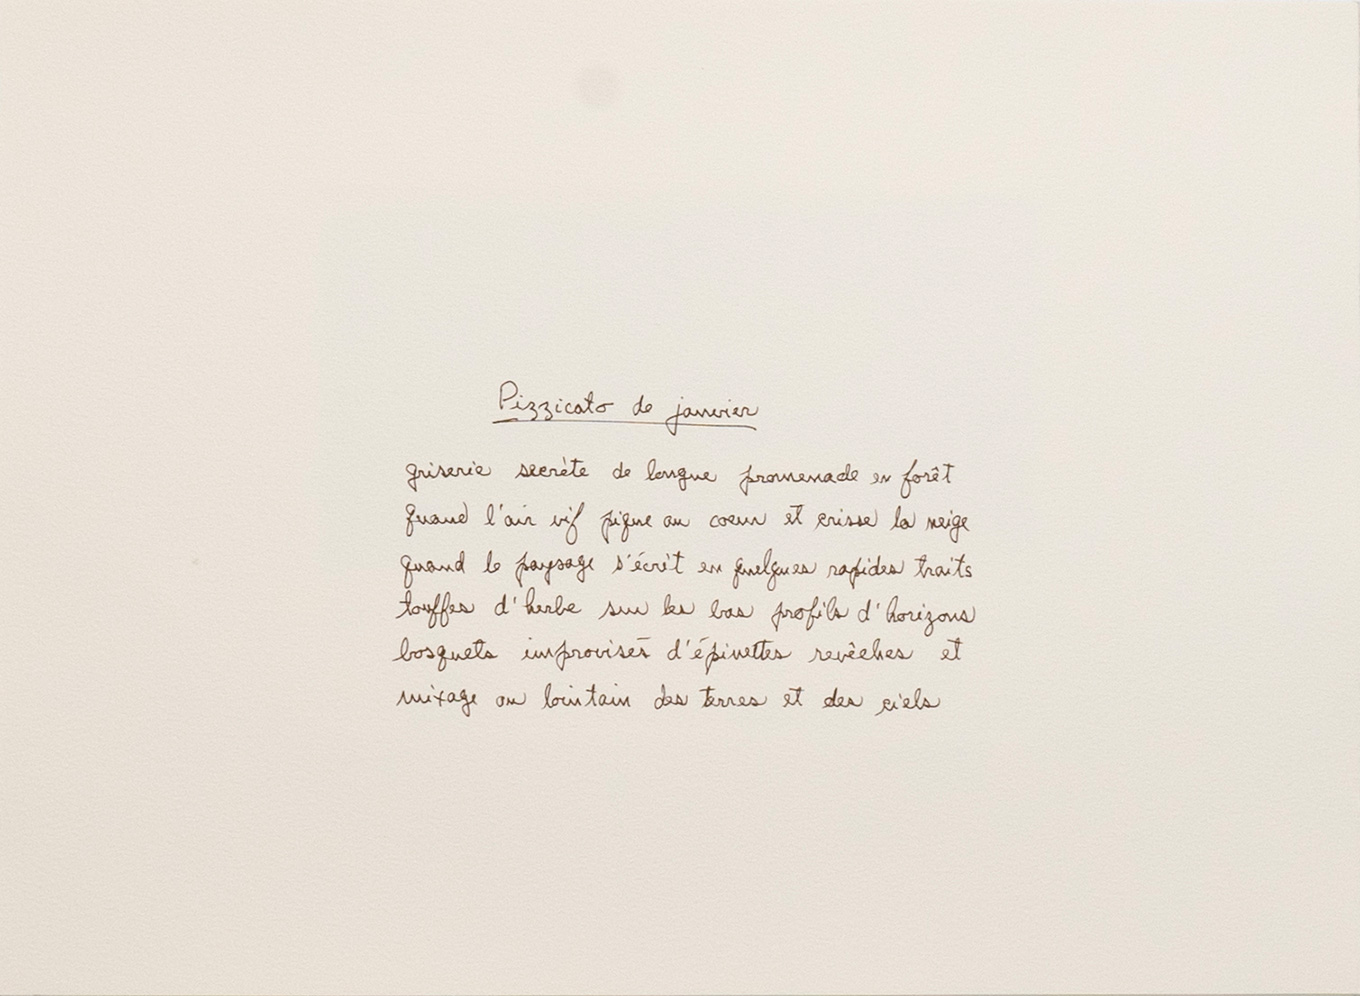 Pizzicato de janvier
griserie secrète de longue promenade en forêt
quand l'air vif pique au coeur et crisse la neige
quand le paysage s'écrit en quelques rapides traits
touffes d'herbe sur les bas profils d'horizons
bosquets improvisés d'épinettes revêches et
mixage au lointain des terres et des ciels